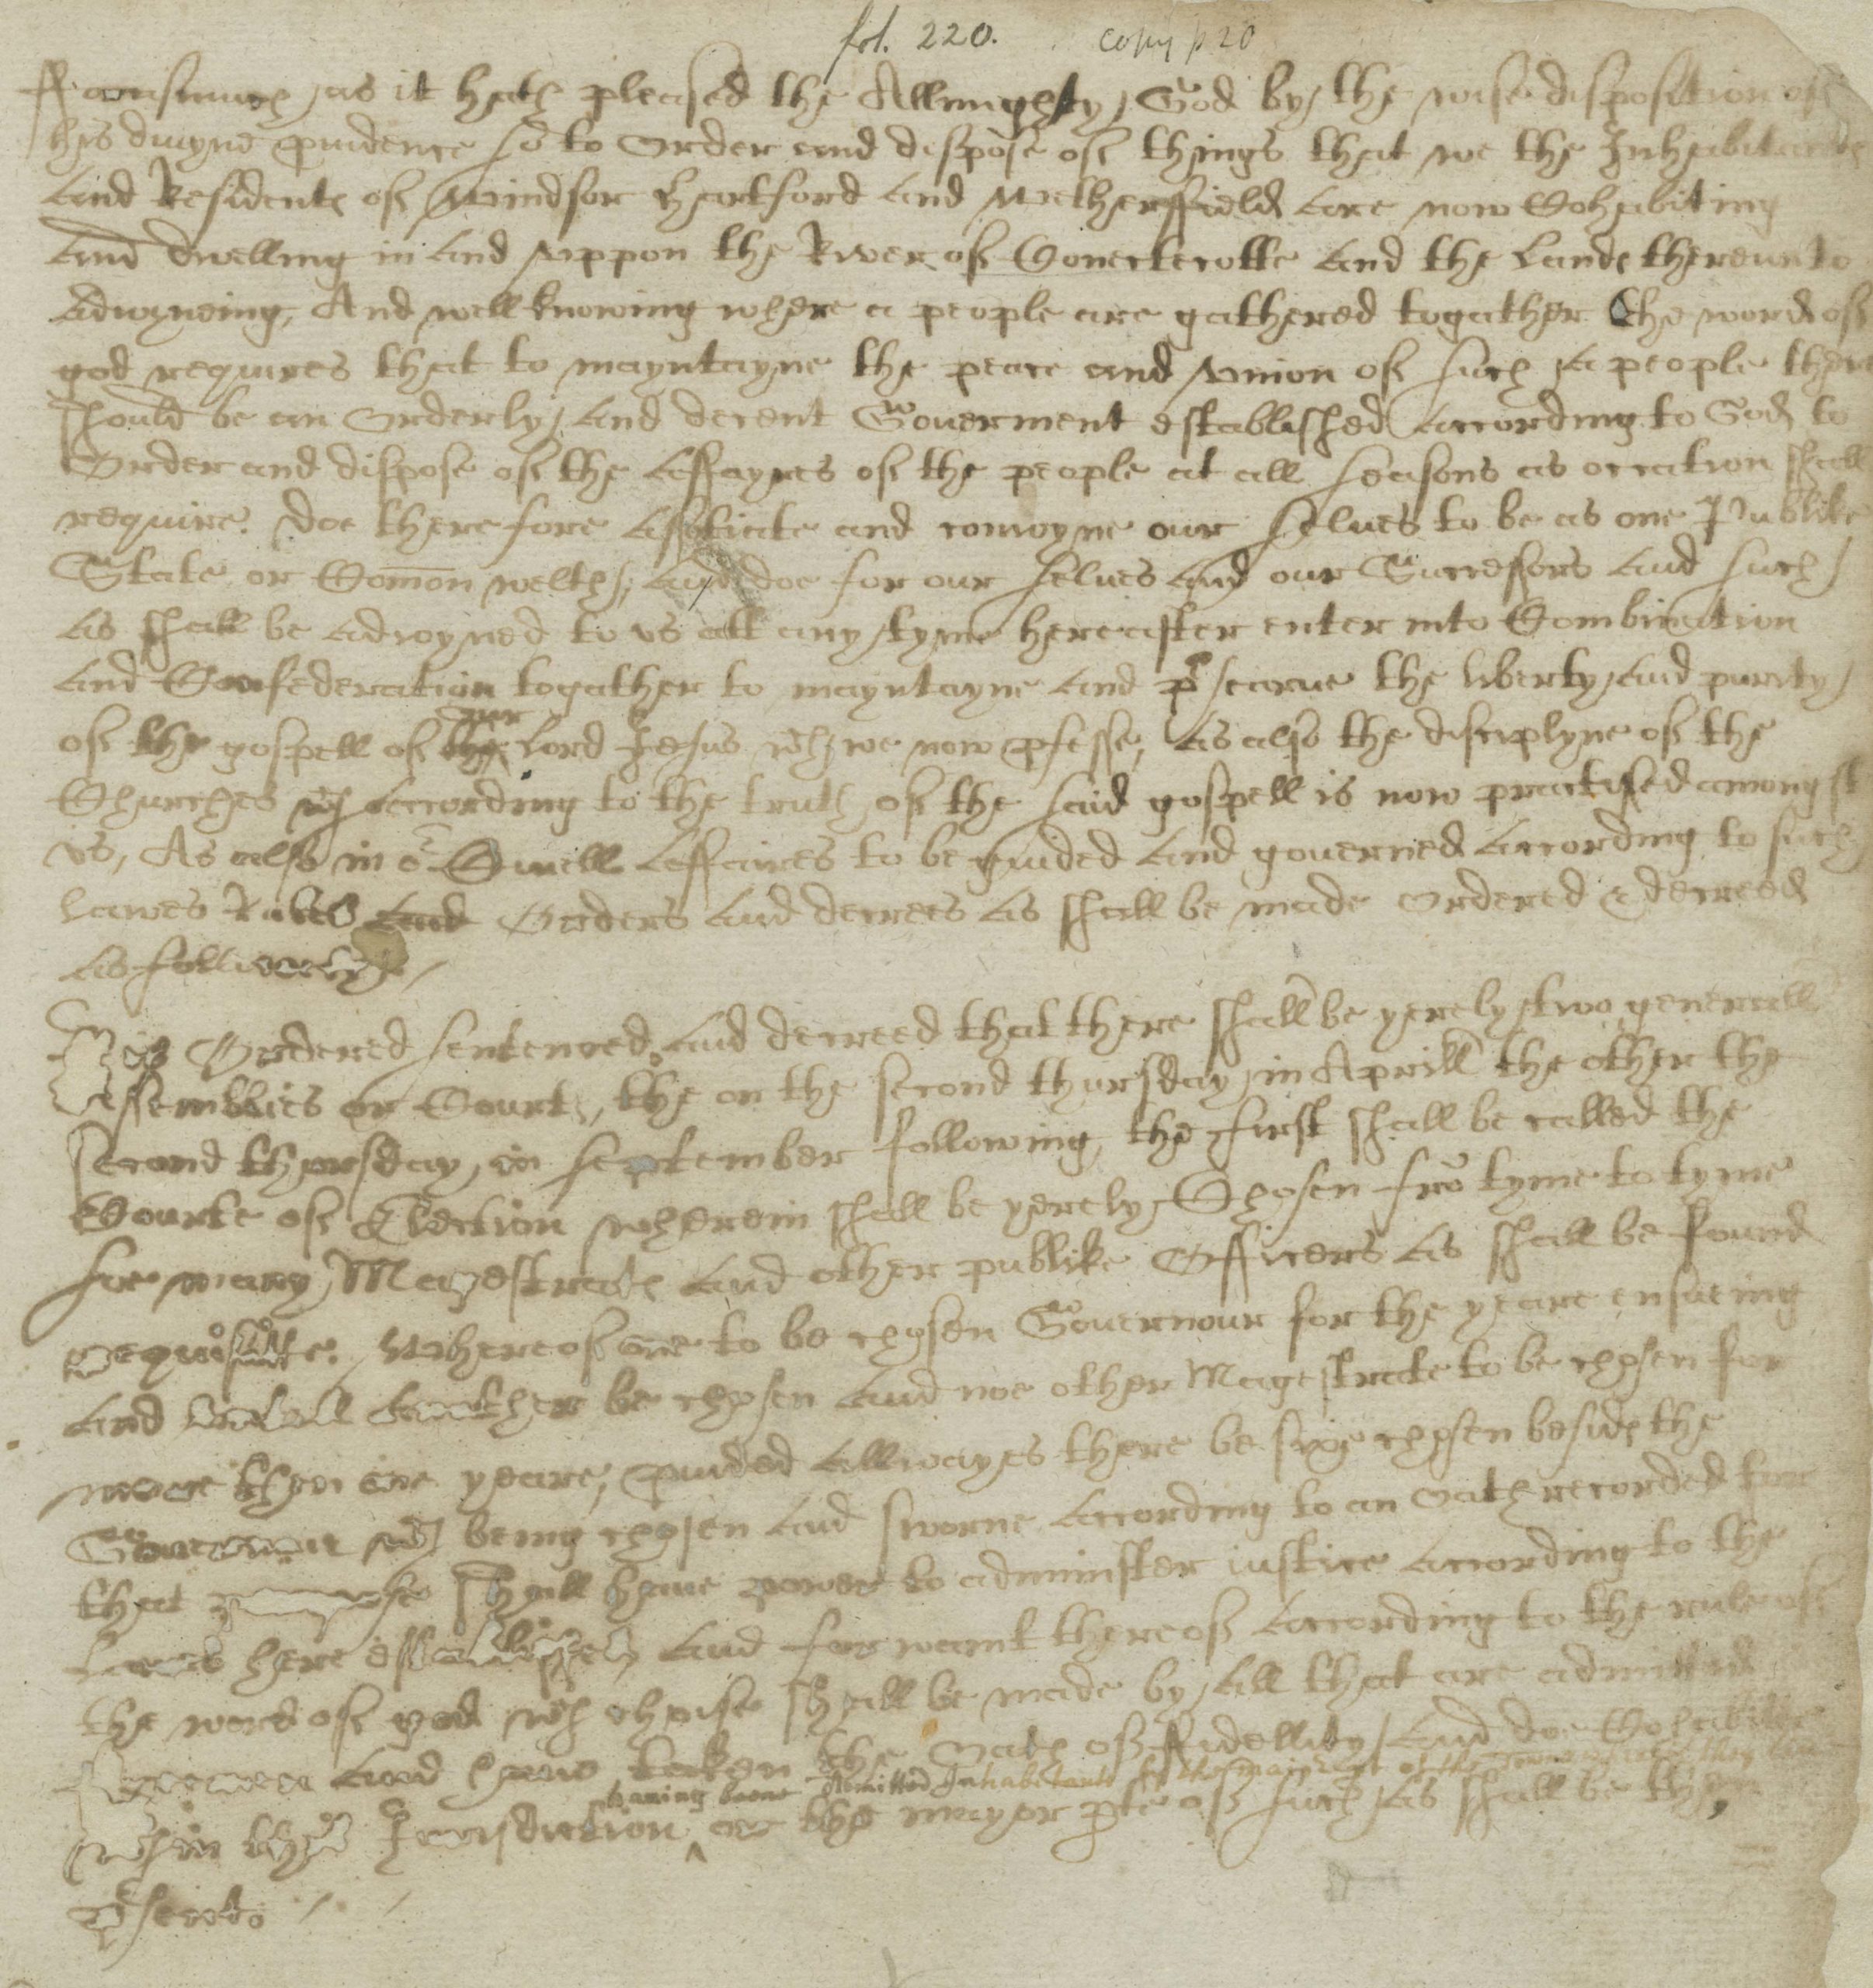 fol. 220. copy p 20
Fforasmuch as it hath pleased the Allmighty God by the wise disposition of
his diuyne pruidence so to Order and dispose of things that we the Inhabitants
and Residents of Windsor Hartford and Wethersfield are now Cohabiting
and dwelling in and vppon the River of Conectecotte and the Lands thereunto
adioyneing; And well knowing where a people are gathered togather the word of
god requires that to mayntayne the peace and vnion of such a people there
should be an Orderly and decent Gouerment established according to God, to
Order and dispose of the affayres of the people at all seasons as occation shall
require; doe therefore assotiate and conioyne our selues to be as one Publike
State or Comōn welth; and doe for our selues and our Successors and such
as shall be adioyned to vs att any tyme hereafter enter into Combination
and Confederation togather to mayntayne and pʳsearue the liberty and purity
of the gospell of our Lord Jesus wᶜʰ we now pfesse, as also the disciplyne of the
Churches wᶜʰ according to the truth of the said gospell is now practised amongst
vs, As also in oʳ Ciuell affaires to be guided and gouerned according to such
Lawes Rules Orders and decrees as shall be made ordered & decreed
as followeth /
It is Ordered sentenced and decreed that there shall be yerely two generall
Assemblies or Courts, the on the second thursday in Aprill the other the
second thursday in September following, the first shall be called the
Courte of Election wherein shall be yerely Chosen frō tyme to tyme
soe many Magestrats and other publike Officers as shall be found
requisitte. Whereof one to be chosen Gouernour for the yeare ensueing
and vntill another be chosen and noe other Magestrate to be chosen for
more then one yeare; pruided allwayes there be sixe chosen besids the
Gouernour wᶜʰ being chosen and sworne according to an Oath recorded for
that purpose shall haue power to administer iustice according to the
Lawes here established and for want thereof according to the rule of
the word of god wᶜʰ choise shall be made by all that are admitted
freemen and haue taken the Oath of Fidellity and doe Cohabitte
haueing beene Admitted Inhabitants by the maior prt of the Towne wherein they liue
wᵗʰin this Jurisdiction ^ or the mayor pte of such as shall be then
pʳsent. /